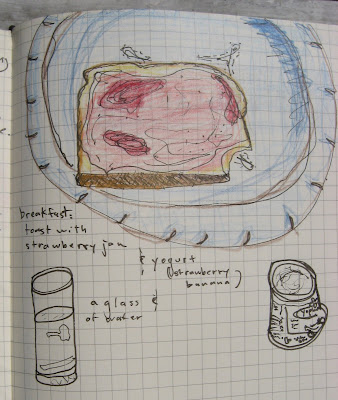 breakfast:
toast with
strawberry jam
& yogurt
(strawberry
banana)
a glass &
of water